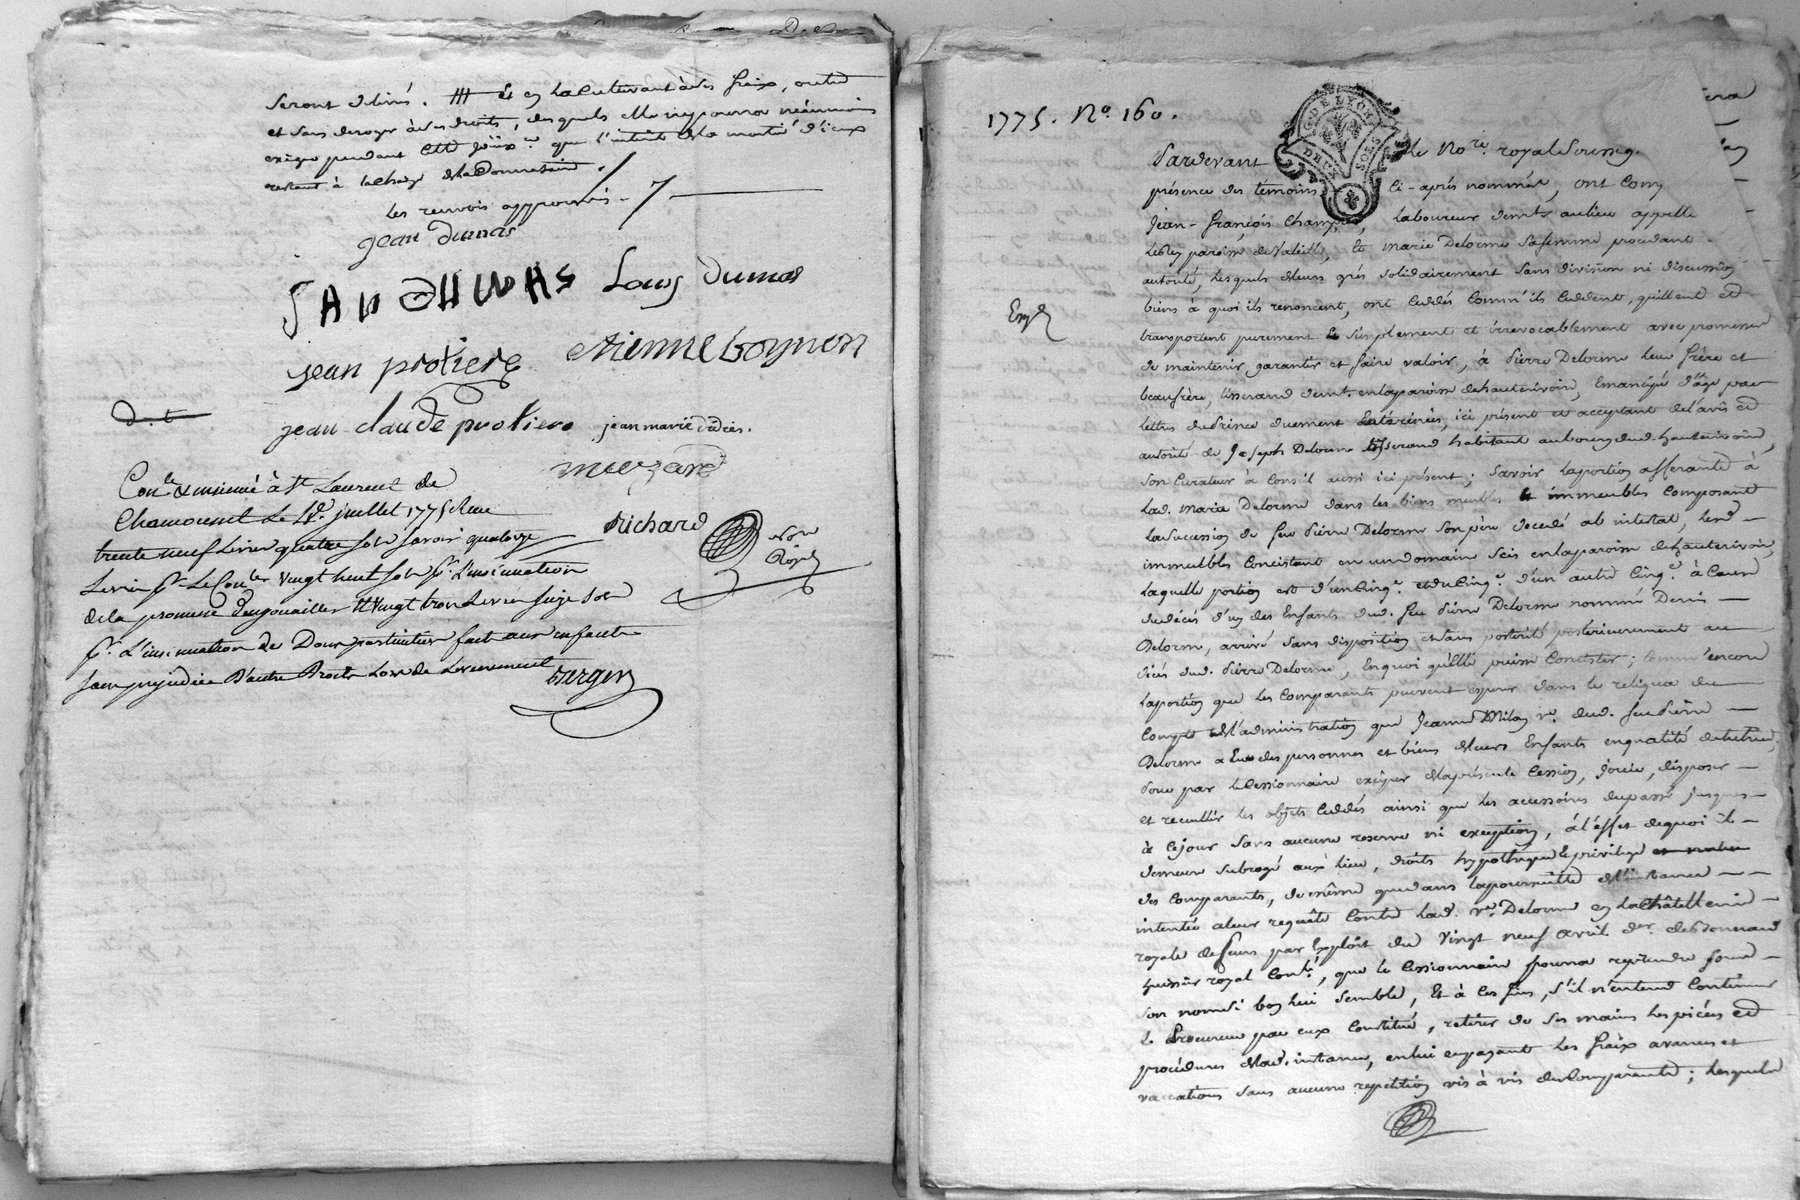 seront delivrés. et en la cultivant à ses fraix, outre
et sans deroger à ses droits, desquels elle ne pourra néanmoins
exiger pendant cette joüiss.ce que l'intérêt de la moitié d'iceux
restant à la charge de la donnataire
Les renvois approuvés
jean dumas
JAN DUMAS Louis dumas
jean protiere etienne Goynon
jean claude protiere jean marie
d. t.
Con.lé & insinué à St Laurent de
Chamousset Le juillet 1775 Reçu
trente neuf Livres quatre sols savoir quatorze
Livres pr. Le Con.lez vingt huit sols pr. L'insinuation
de la promesse d'egouailler et vingt trois Livres seize sols
pr. L'insinuation de Deux faits aux enfants
sans prejudice D'autre Droits Lors de L'evenement
Richard
not.re
Royal
1775. No. 160.
G. DE LYON
DEUX SOLS
Pardevant le No.re royal soussig.
présence des témoins ci-après nommés, ont comp
Jean-François laboureur demt. au lieu appellé
paroisse de Valeille, et marie Delorme sa femme procédant
autorité, lesquels de leurs grés solidairement sans division ni discussion
biens à quoi ils renoncent, ont cédés comm'ils cèdent, quittent et
Exp.
transportent purement simplement et irrévocablement avec promesse
de maintenir, garantir et faire valoir, à Pierre Delorme leur frère et
beaufrère, tisserand demt. en la paroisse de hauterivoire, émancipé d'âge par
lettres du Prince duement entérinées, ici présent et acceptant de l'avis et
autorité de Joseph Delorme tisserand habitant au bourg dud. hauterivoire,
son curateur à conseil aussi ici présent; savoir la portion afférante à
lad. marie Delorme dans les biens meubles & immeubles composant
la succession de feu Pierre Delorme son père decedé ab intestat, lesd.
immeubles consistant en un domaine scis en la paroisse de hauterivoire,
laquelle portion est d'un cinq.e et du cinq.e d'un autre cinq.e à cause
du décés d'un des enfants dud. feu Pierre Delorme nommé Denis
Delorme, arrivé sans disposition et sans postérité postérieurement au
décés dud. Pierre Delorme, en quoi qu'elle puisse consister; comm'encore
la portion que les comparants peuvent espérer dans le reliqua du
compte de l'administration que Jeanne Milon ve. dud. feu Pierre
Delorme a eue des personnes et biens de leurs enfants en qualité de tutrice;
pour par le cessionnaire exiger de la présente cession, jouir, disposer
et recueillir les objets cédés ainsi que les accessoires du passé jusques
à ce jour sans aucune reserve ni exception, à l'effet de quoi il
demeure subrogé aux lieu, droits hypothèque & privilège
des comparants, de même que dans la poursuitte de l'instance
intentée à leur requête contre lad. ve. Delorme en la Châtellenie
royale de Feurs par exploit du vingt neuf avril der. de
huissier royal conlé., que le cessionnaire pourra reprendre sous
son nom si bon lui semble, et à ces fins, s'il n'entend continuer
le Procureur par eux constitué, retirer de ses mains les pièces et
procédures de lad. instance, en lui en payant les fraix avancés et
vaccations sans aucune repetition vis à vis des comparants; lesquels